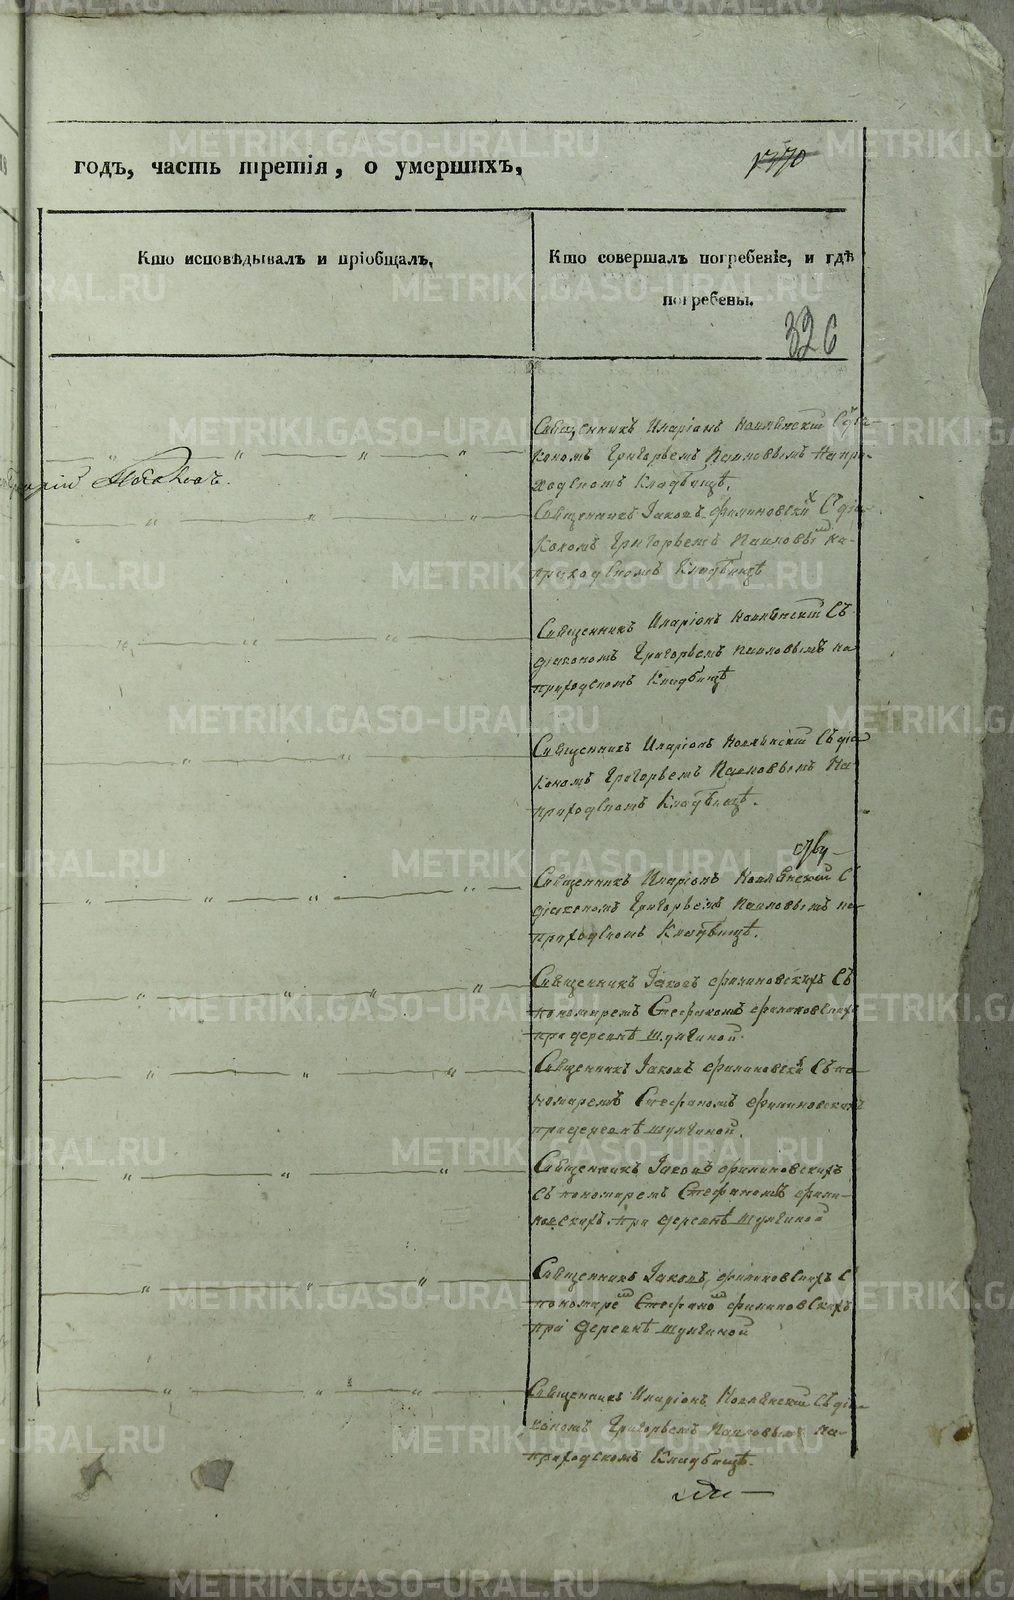 годъ, часть третія, о умершихъ,
1370
Кто исповѣдывалъ и пріобщалъ,
Кто совершалъ погребеніе, и гдѣ
погребены.
326
Священникъ Иларіонъ Съ діа-
кономъ Григорьемъ Павловымъ На при-
ходскомъ Кладбищѣ.
Священникъ Іаковъ Филиновскихъ Съ діа-
кономъ Григорьемъ Павловымъ на
приходскомъ Кладбищѣ
Священникъ Иларіонъ Съ
діакономъ Григорьемъ Павловымъ на
приходскомъ Кладбищѣ
Священникъ Иларіонъ Съ діа
кономъ Григорьемъ Павловымъ На
приходскомъ Кладбищѣ.
Священникъ Иларіонъ С
діакономъ Григорьемъ Павловымъ на
приходскомъ Кладбищѣ.
Священникъ Іаковъ Филиновскихъ Съ
пономаремъ Стефаномъ Филиновскихъ
при деревнѣ Шульгиной.
Священникъ Іаковъ Филиновскихъ Съ по-
номаремъ Стефаномъ Филиновскихъ
при деревнѣ Шульгиной.
Священникъ Іаковъ Филиновскихъ
Съ пономаремъ Стефаномъ Фили-
новскихъ при деревнѣ Шульгиной
Священникъ Іаковъ Филиновскихъ С
пономаремъ Стефаномъ Филиновскихъ
при деревнѣ Шульгиной
Священникъ Иларіонъ Съ діа
кономъ Григорьемъ Павловымъ На-
приходскомъ Кладбищѣ.
METRIKI.GASO-URAL.RU